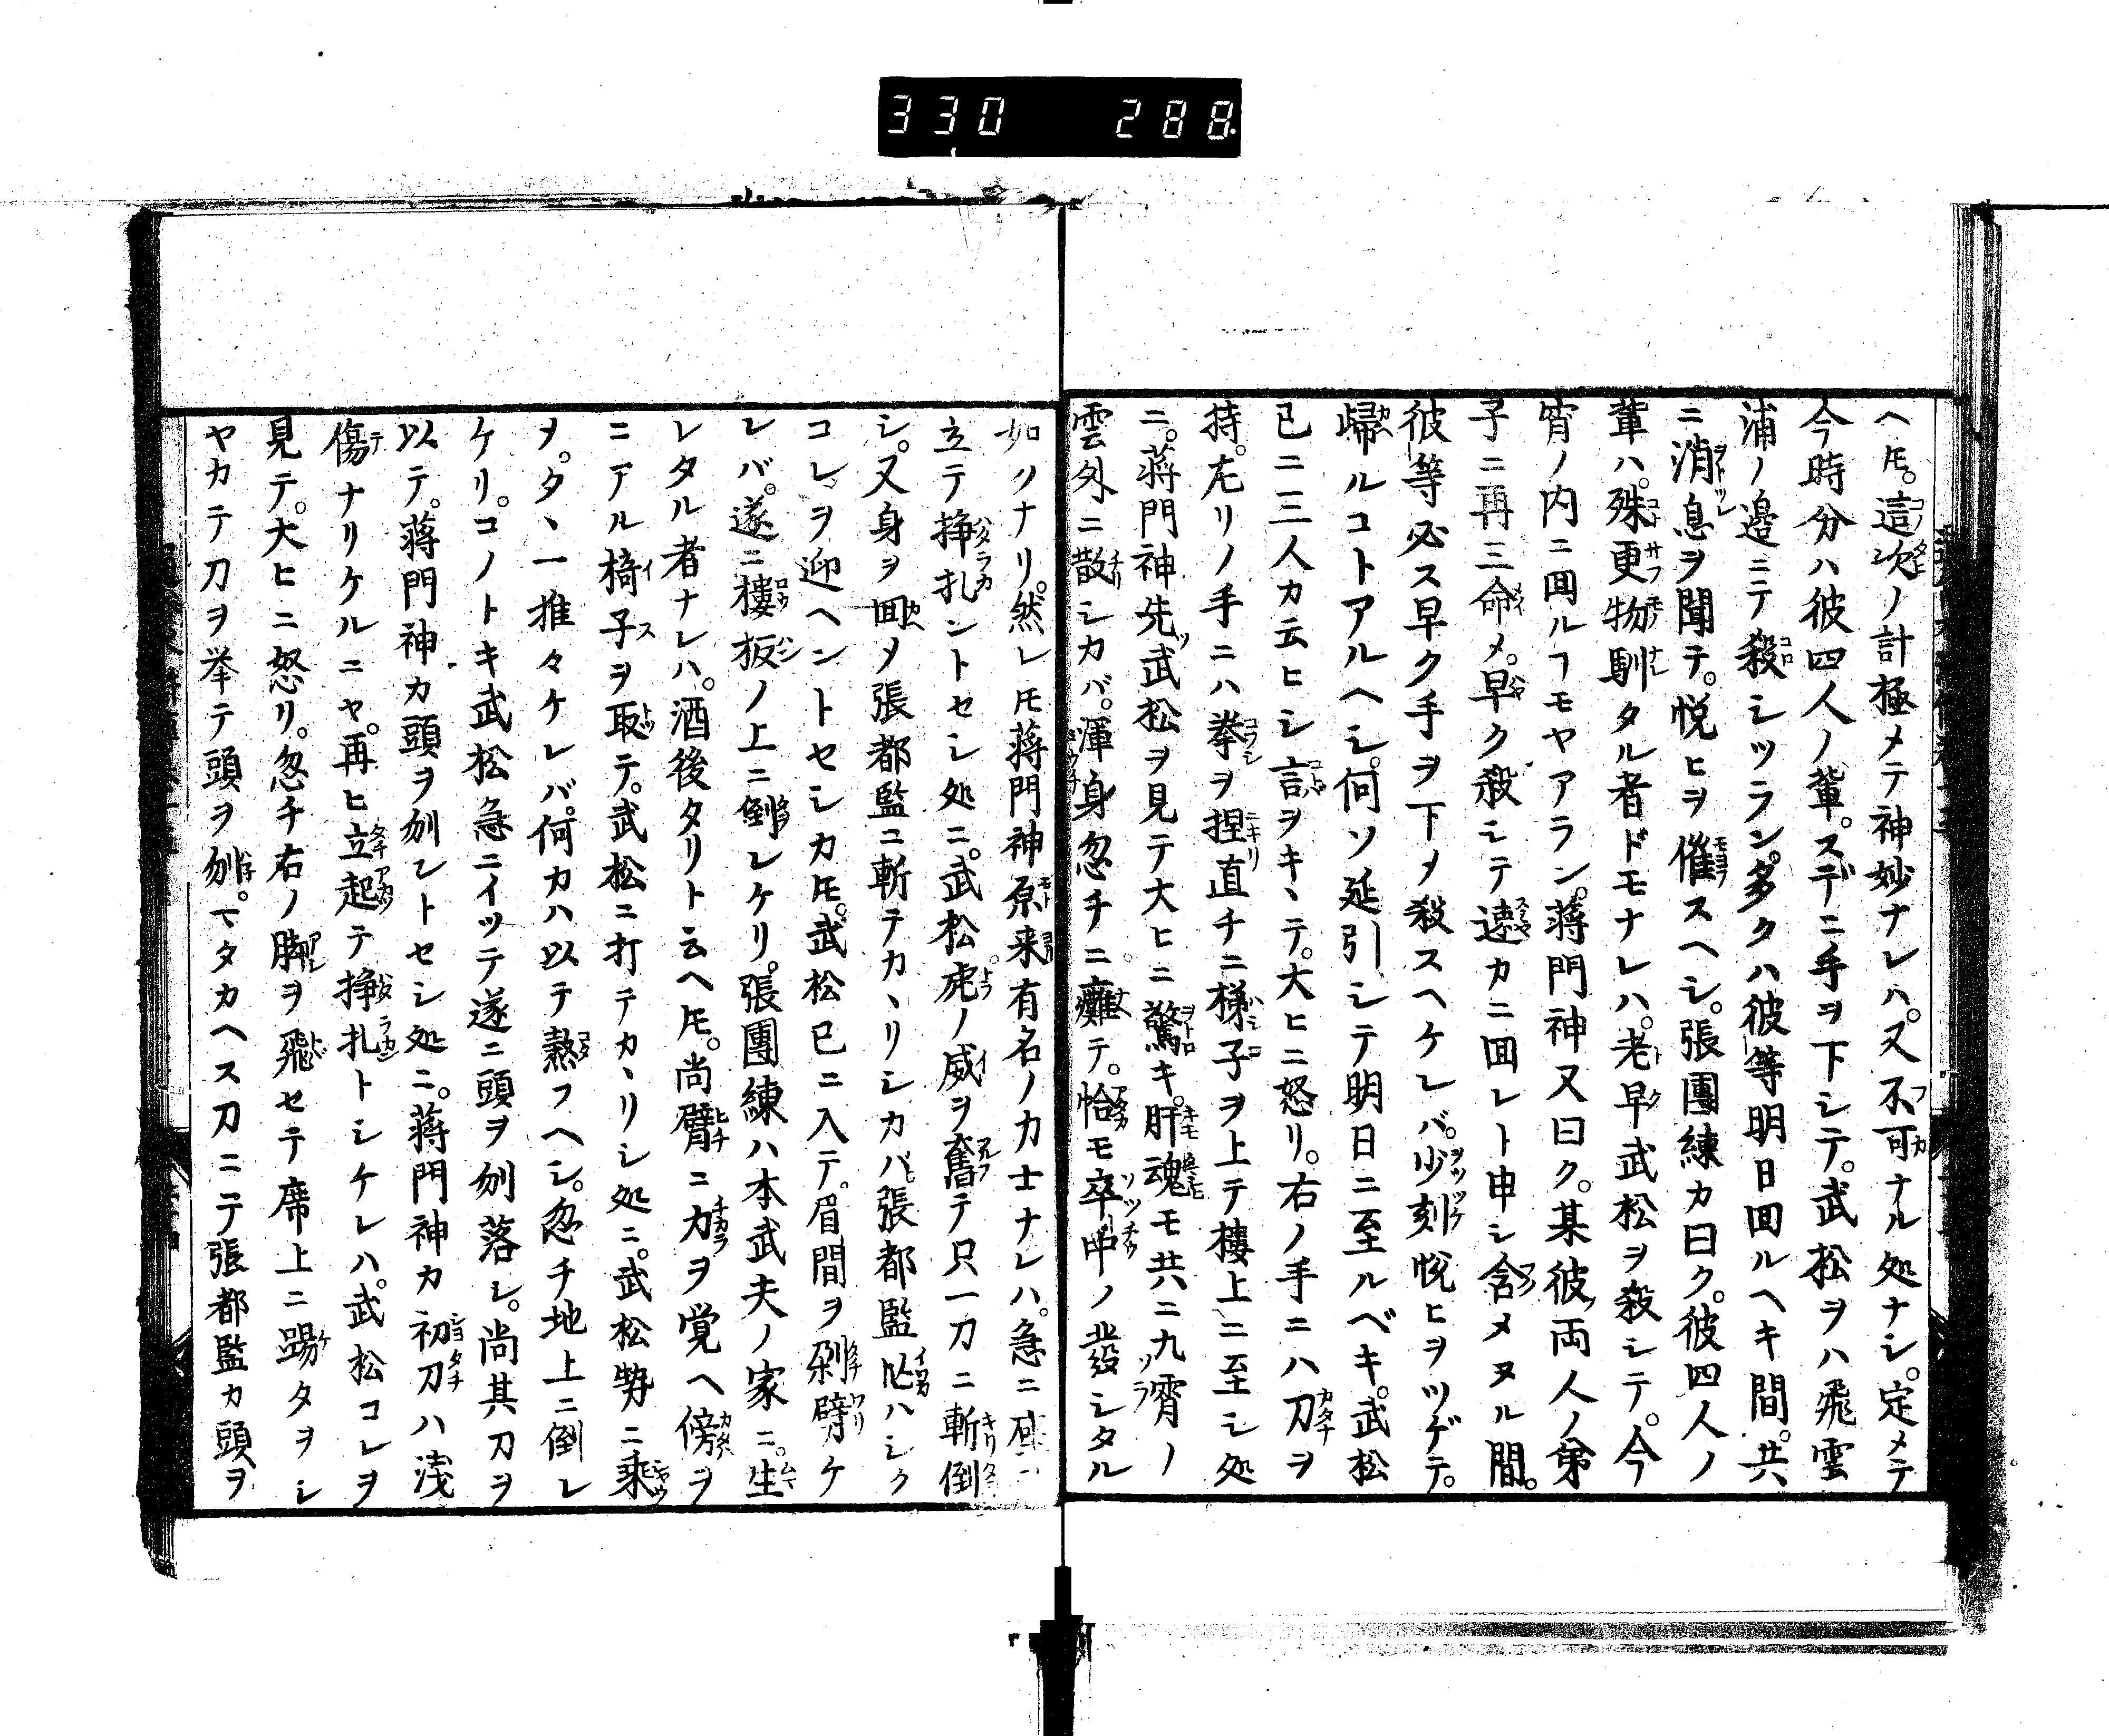 330 288
ヘ𪜈。這次ノ計極メテ神妙ナレハ。又不可ナル処ナシ。定メテ
今時分ハ彼四人ノ輩。スデニ手ヲ下シテ。武松ヲハ飛雲
浦ノ邉ニテ殺シツラン。多クハ彼等明日回ルヘキ間。共
ニ消息ヲ聞テ。悦ヒヲ催スヘシ。張團練カ曰ク。彼四人ノ
輩ハ。殊更物馴タル者ドモナレハ。老早武松ヲ殺シテ。今
宵ノ内ニ回ルヿモヤアラン。蒋門神又曰ク。某彼両人ノ弟
子ニ再三命メ。早ク殺シテ速カニ回レト申シ含メヌル間。
彼等必ス早ク手ヲ下メ殺スヘケレバ。少刻悦ヒヲツゲテ。
歸ルコトアルヘシ。何ソ延引シテ明日ニ至ルベキ。武松
已ニ三人カ云ヒシ言ヲキヽテ。大ヒニ怒リ。右ノ手ニハ刀ヲ
持。左リノ手ニハ拳ヲ捏直チニ梯子ヲ上テ樓上ニ至シ処
ニ。蒋門神先武松ヲ見テ大ヒニ驚キ。肝魂モ共ニ九霄ノ
雲外ニ散シカバ。渾身忽チニ癱テ。恰モ卒中ノ發シタル
如クナリ。然レ𪜈蒋門神原来有名ノ力士ナレハ。急ニ
立テ掙扎ントセシ処ニ。武松虎ノ威ヲ奮テ只一刀ニ斬倒
シ。又身ヲ回メ張都監ニ斬テカヽリシカバ。張都監忙ハシク
コレヲ迎ヘントセシカ𪜈。武松已ニ入テ。眉間ヲ剁劈ケ
レバ。遂ニ樓板ノ上ニ倒レケリ。張團練ハ本武夫ノ家ニ。生
レタル者ナレハ。酒後タリト云ヘ𪜈。尚臂ニ力ヲ覚ヘ傍ヲ
ニアル椅子ヲ取テ。武松ニ打テカヽリシ処ニ。武松勢ニ乘
ヲ。タヽ一推々ケレバ。何カハ以テ熬フヘシ。忽チ地上ニ倒レ
ケリ。コノトキ武松急ニイツテ遂ニ頭ヲ刎落シ。尚其刀ヲ
以テ。蒋門神カ頭ヲ刎ントセシ処ニ。蒋門神カ初刀ハ浅
傷ナリケルニヤ。再ヒ立起テ掙扎トシケレハ。武松コレヲ
見テ。大ヒニ怒リ。忽チ右ノ脚ヲ飛セテ席上ニ踢タヲシ
ヤカテ刀ヲ挙テ頭ヲ刎。マタカヘス刀ニテ張都監カ頭ヲ